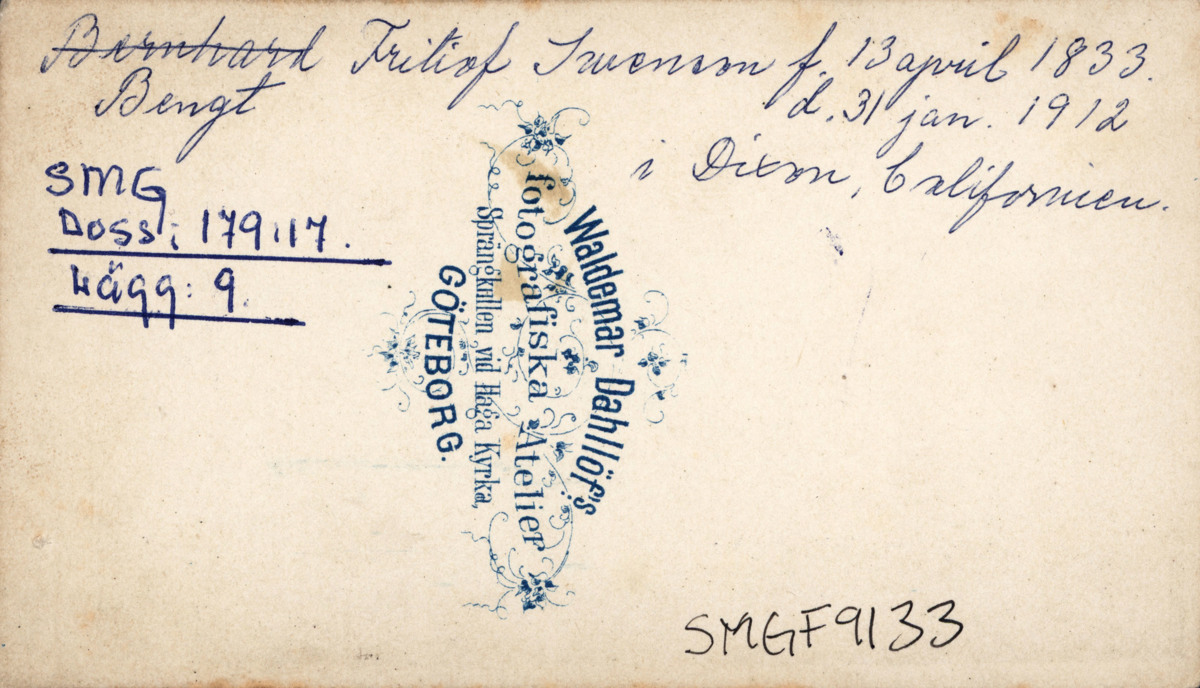 Bernhard Fritiof Swenson f. 13 april 1833.
Bengt
d. 31 jan. 1912
i Dixon, Californien.
SMG
Doss: 179:17.
Lägg: 9.
Waldemar Dahllöf's
fotografiska Atelier
Sprängkullen vid Haga Kyrka,
GÖTEBORG.
SMGF9133